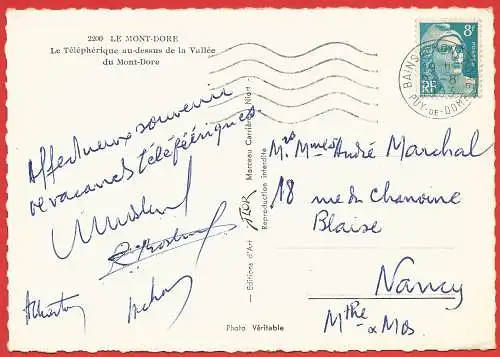 2200 LE MONT-DORE
Le Téléphérique au-dessus de la Vallée
du Mont-Dore
8F
POSTES
RF
PUY-DE-DOME
Affectueux souvenir
de vacances téléfériques.
— Editions d'Art FLOR Marceau Carrière - Niort -
Reproduction interdite
Mrs Mmes André Marchal
18 rue du Chanoine
Blaise
Nancy
Mthe & Mos
Photo Véritable